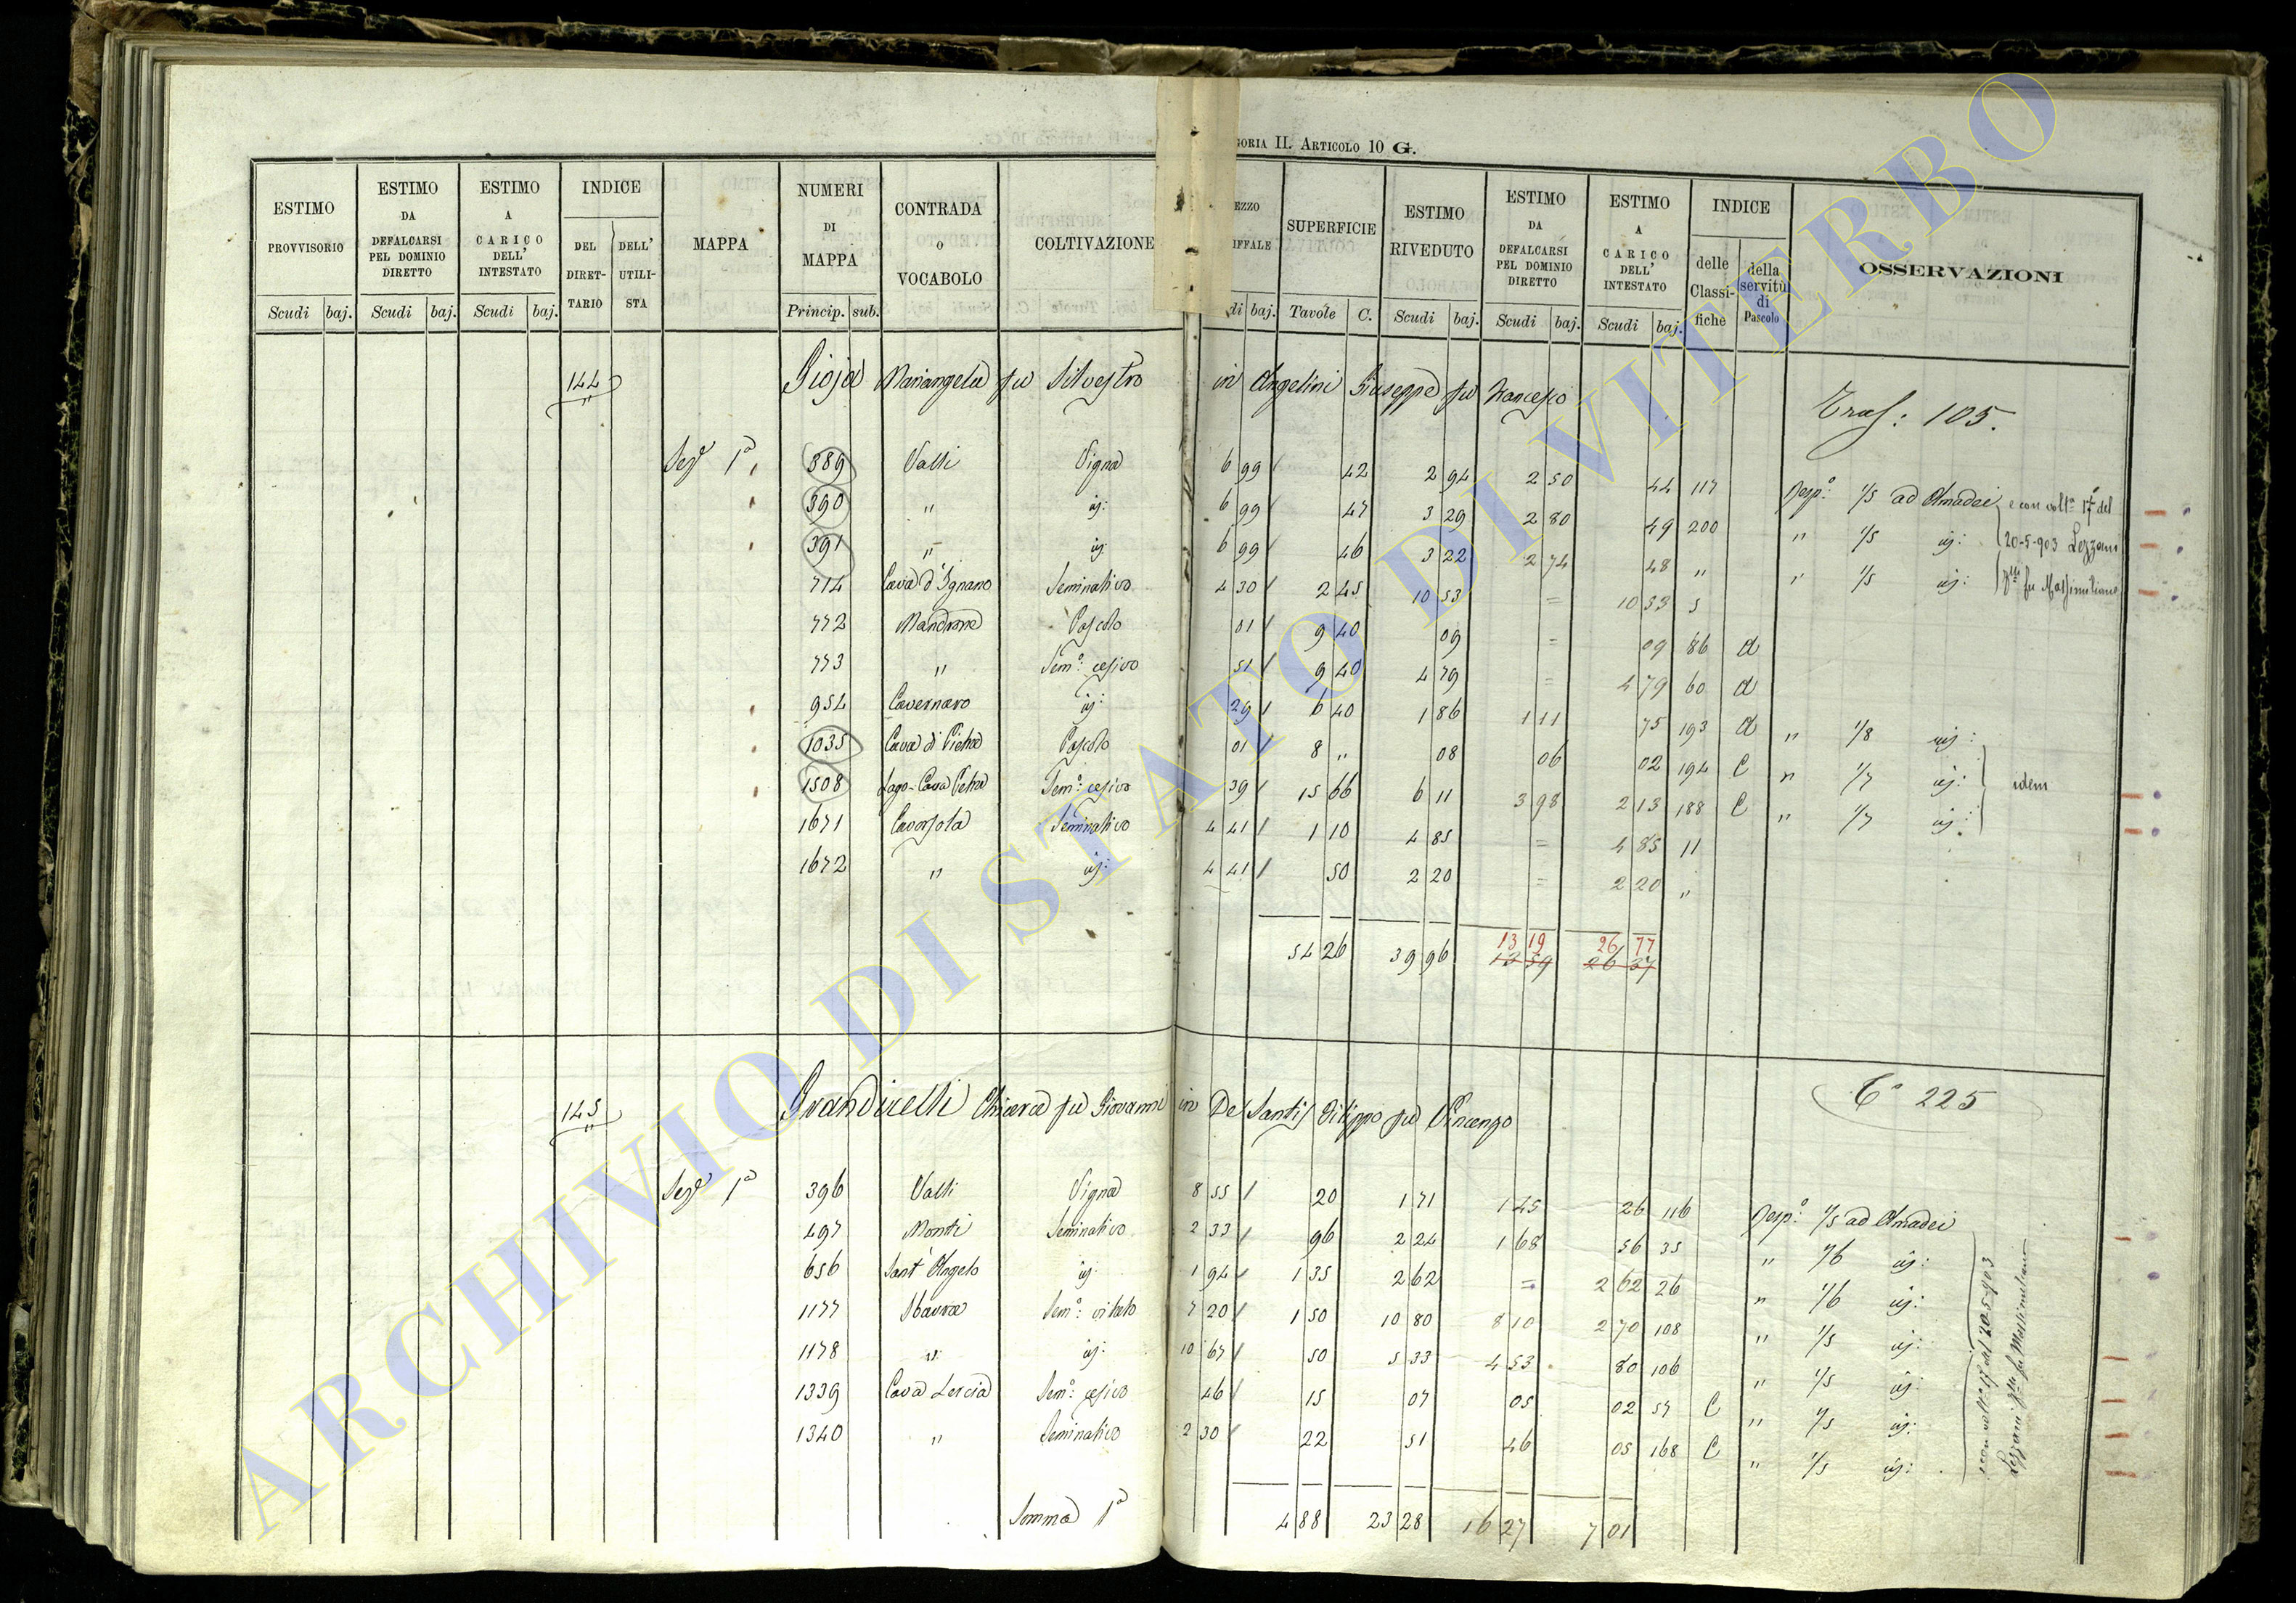 GORIA II. ARTICOLO 10 G.
ESTIMO PROVVISORIO
ESTIMO DA DEFALCARSI PEL DOMINIO DIRETTO
ESTIMO A CARICO DELL' INTESTATO
INDICE
DEL DIRETTARIO
DELL' UTILISTA
MAPPA
NUMERI DI MAPPA
CONTRADA O VOCABOLO
COLTIVAZIONE
EZZO IFFALE
SUPERFICIE
ESTIMO RIVEDUTO
ESTIMO DA DEFALCARSI PEL DOMINIO DIRETTO
ESTIMO A CARICO DELL' INTESTATO
INDICE
delle Classifiche
della servitù di Pascolo
OSSERVAZIONI
Scudi baj. Scudi baj. Scudi baj. Princip. sub. di baj. Tavole C. Scudi baj. Scudi baj. Scudi baj.
144 Gioja Mariangela fu Silvestro in Angelini Giuseppe fu Francesco
Tras: 105.
Seze 1a 389 Valli Vigna 6 99 42 2 94 2 50 44 117 Resp: 1/5 ad Amadei
390 " id: 6 99 47 3 29 2 80 49 200 " 1/5 id:
391 " id: 6 99 46 3 22 2 74 48 " " 1/5 id:
e con volta 17 del
20-5-903 Lezzani
fu Massimiliano
714 Cava d'Ignano Seminativo 4 30 2 45 10 53 = 10 53 5
772 Mandrone Pascolo 01 9 40 09 = 09 86 d
773 " Semo: cesivo 51 9 40 4 79 = 4 79 60 d
954 Cavernaro id: 29 6 40 1 86 1 11 75 193 d " 1/8 id:
1035 Cava di Pietra Pascolo 01 8 " 08 06 02 194 C " 1/7 id:
1508 Lago-Cava Pietra Semo: cesivo 39 15 66 6 11 3 98 2 13 188 C " 1/7 id:
idem
1671 Cavorsola Seminativo 4 41 1 10 4 85 = 4 85 11
1672 " id: 4 41 50 2 20 = 2 20 "
13 19 26 77
54 26 39 96 13 59 26 37
145 Grandicelli Chiara fu Giovanni in De Santis Filippo fu Vincenzo
Co 225
Sezе 1a 396 Valli Vigna 8 55 20 1 71 1 45 26 116 Resp: 1/5 ad Amadei
497 Monti Seminativo 2 33 96 2 24 1 68 56 35 " 1/6 id:
656 Sant'Angelo id: 1 94 1 35 2 62 = 2 62 26 " 1/6 id:
1177 Sbarra Semo: vitato 7 20 1 50 10 80 8 10 2 70 108 " 1/5 id:
1178 " id: 10 67 50 5 33 4 53 80 106 " 1/5 id:
1339 Cava Lescia Semo: cesivo 46 15 07 05 02 57 C " 1/5 id:
1340 " Seminativo 2 30 22 51 46 05 168 C " 1/5 id:
e con volta 17 del 20-5-903
Lezzani fu Massimiliano
Somma 1a 4 88 23 28 16 27 7 01
ARCHIVIO DI STATO DI VITERBO